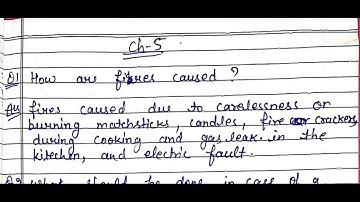 Ch-5
Q1 How are fires caused ?
Ans fires caused due to carelessness or
burning matchsticks, candles, fire crackers
during cooking and gas leak in the
kitchen, and electric fault.
Q2 What should be done in case of a